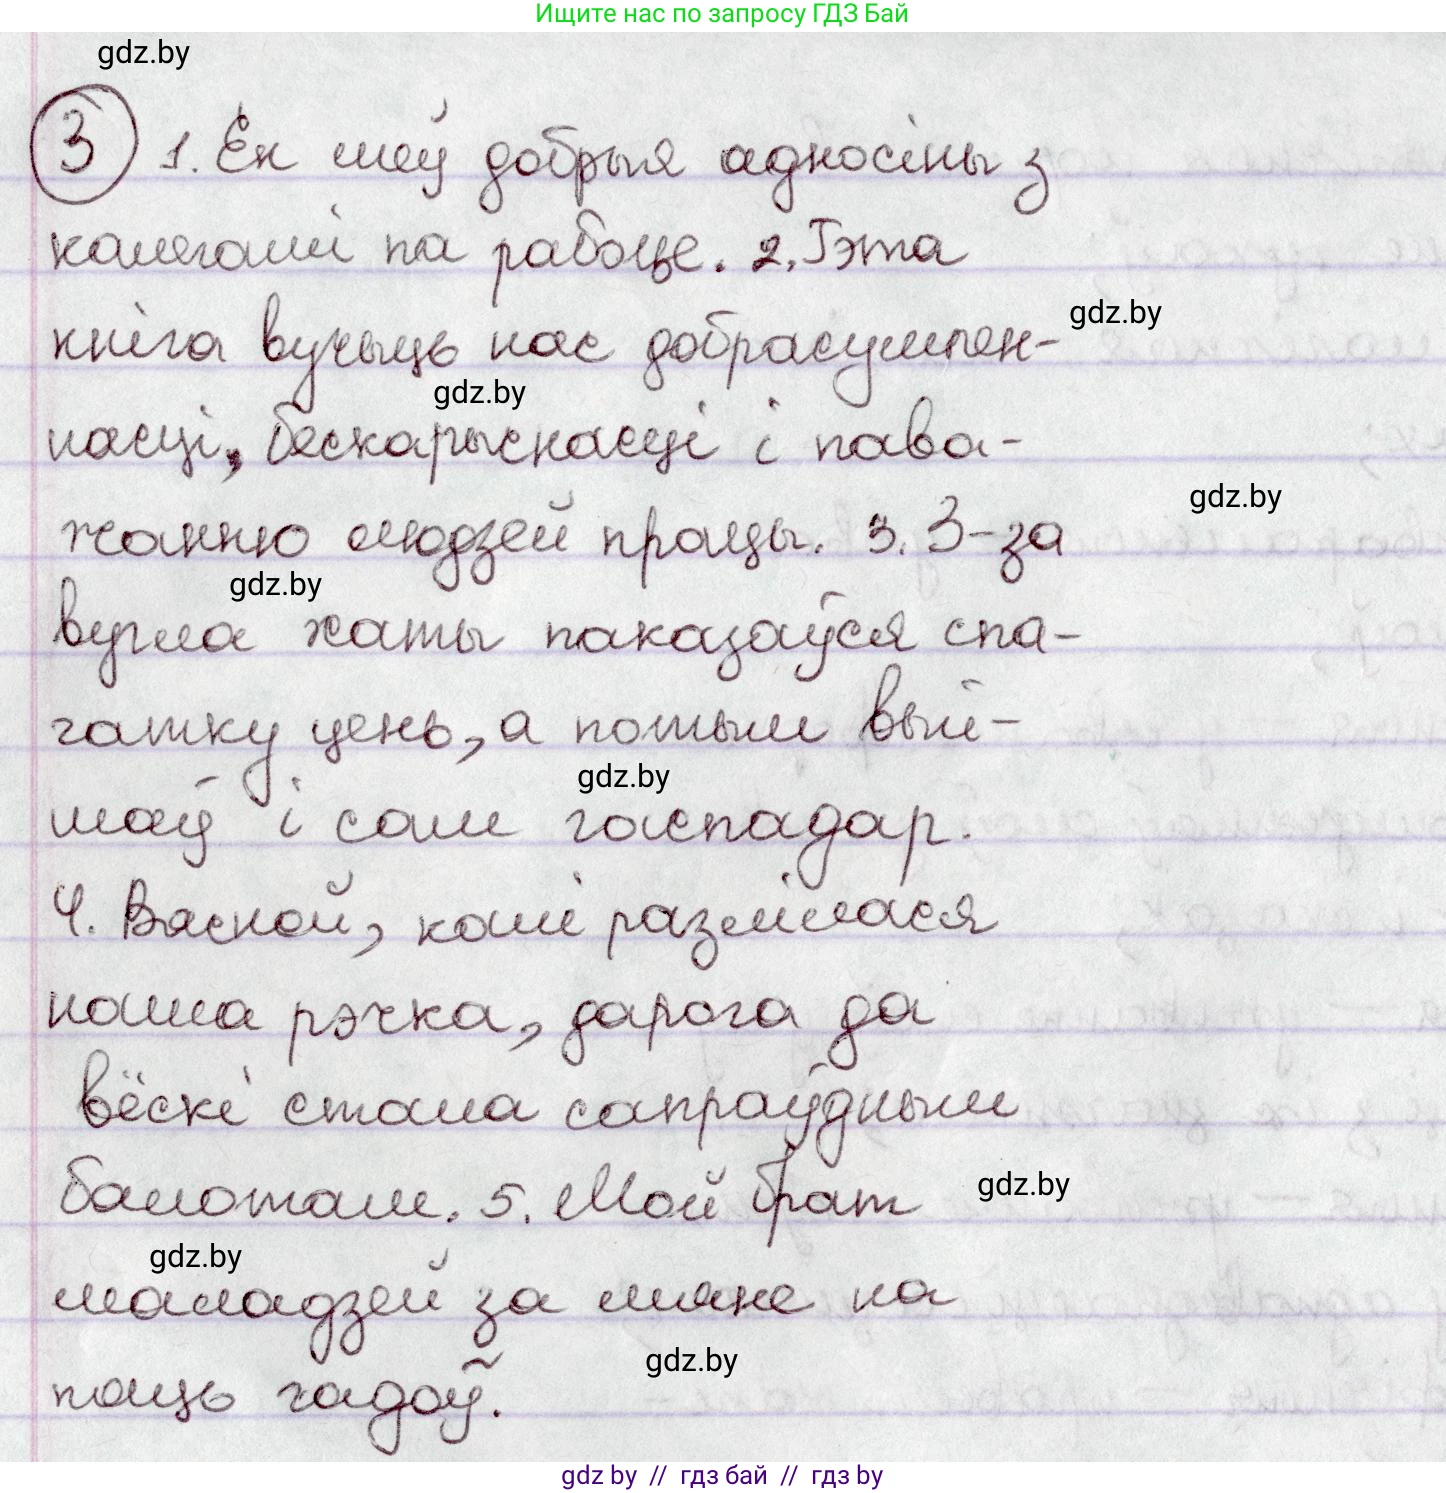 Ищите нас по запросу ГДЗ Бай
gdz.by
3 1. Ён меў добрыя адносіны з
калегамі па рабоце. 2. Гэта
gdz.by
кніга вучыць нас добрасумлен-
gdz.by
насці, бескарыснасці і пава-
gdz.by
жанню людзей працы. 3. З-за
gdz.by
вугла хаты паказаўся спа-
чатку цень, а потым вый-
gdz.by
шаў і сам гаспадар.
4. Вясной, калі разлілася
наша рэчка, дарога да
вёскі стала сапраўдным
балотам. 5. Мой брат
gdz.by
gdz.by
маладзей за мяне на
gdz.by
пяць гадоў.
gdz by // гдз бай // гдз by